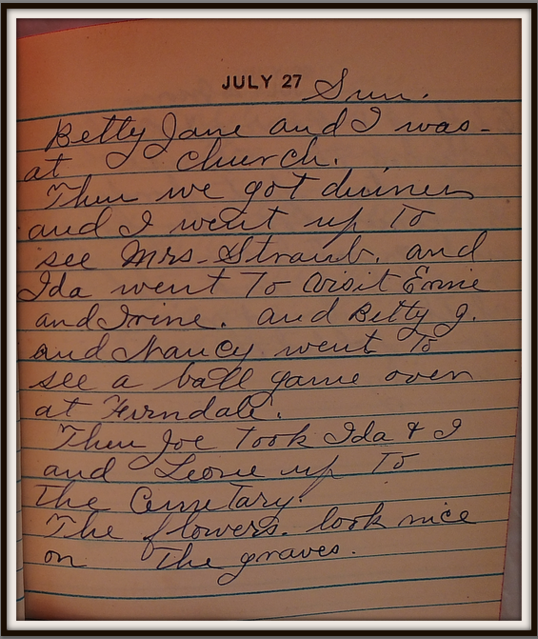 JULY 27 Sun.
Betty Jane and I was
at church.
Then we got dinner
and I went up To
see Mrs. Straub. and
Ida went To Visit Ernie
and Irine. and Betty J.
and Nancy went To
see a ball game over
at Ferndale.
Then Joe Took Ida & I
and Leone up To
The Cemetary.
The flowers. look nice
on The graves.